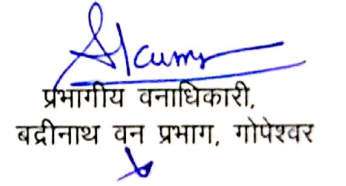 प्रभागीय वनाधिकारी,
बद्रीनाथ वन प्रभाग, गोपेश्वर